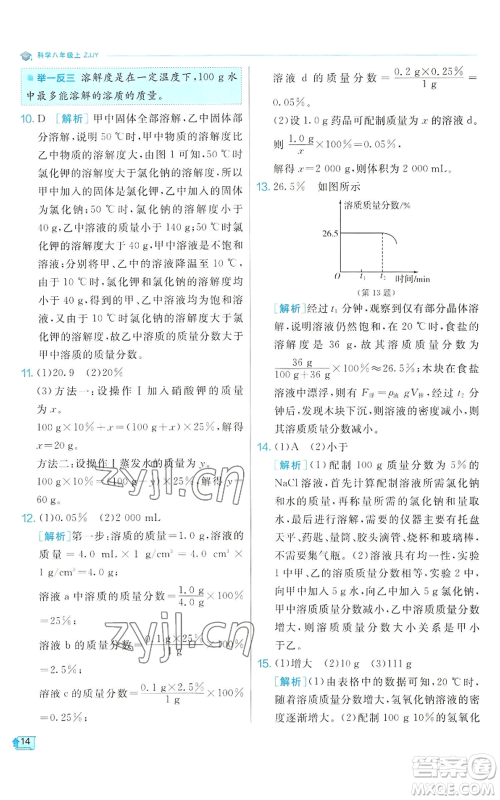 科学八年级上 ZJJY
举一反三 溶解度是在一定温度下,100 g 水
中最多能溶解的溶质的质量。
10. D [解析] 甲中固体全部溶解,乙中固体部
分溶解,说明 50 ℃时,甲中物质的溶解度比
乙中物质的溶解度大,50 ℃时氯化钾的溶解
度大于氯化钠,所以甲中加入的固体是氯化
钾,乙中加入的固体为氯化钠;50 ℃时,氯
化钾的溶解度大于 40 g,而氯化钠小于
40 g,乙溶液一定是饱和溶液;50 ℃时,氯
化钾的溶解度大于 40 g,甲溶液是不饱和
溶液;分别将甲、乙两杯溶液升温至
70 ℃,两种固体的溶解度都增大,甲中溶质
质量分数不变,50 ℃时乙中氯化钠的溶解度
小于 40 g,溶液中还有剩余固体,升温后溶
解度增大,故乙中溶质的质量分数增大。
11. (1)20.9 (2)20%
(3)方法一:设操作Ⅰ加入硝酸钾的质量
为 x。
100 g×10%+x=(100 g+x)×25%,解得
x=20 g。
方法二:设操作Ⅰ蒸发水的质量为 y。
100 g×10%=(100 g-y)×25%,解得 y=
60 g。
12. (1)0.05% (2)2 000 mL
[解析] 第一步:溶质的质量=1.0 g,溶液的
质量=4.0 mL×1 g/cm³=4.0 cm³×
1 g/cm³=4.0 g。
溶液 a 中溶质的质量分数=1.0 g/4.0 g×100%
=25%。
溶液 b 的溶质质量分数=0.1 g×25%/1 g×100%
=2.5%。
溶液 c 的溶质质量分数=0.1 g×2.5%/1 g×100%
=0.25%。
14
溶液 d 的溶质质量分数=0.2 g×0.25%/1 g×100%=
0.05%。
(2)设 1.0 g 药品可配制的溶液 d 的质量
为 x,则有1.0 g/x×100%=0.05%。
解得 x=2 000 g,合体积为 2 000 mL。
13. 26.5% 如图所示
溶质质量分数/%
26.5
0
t₁
t₂
时间/min
(第 13 题)
[解析] 经过 t₁ 分钟,观察到仅有部分晶体溶
解,说明溶液仍然饱和,在 20 ℃时,食盐的溶
解度为 36 g,故其溶质质量分数为
36 g/(100 g+36 g)×100%≈26.5%;木块在食盐
溶液中漂浮,则有 F浮=ρ液gV排=G木,加水后,
发现木块下沉,则说明液体密度减小,故溶质
质量分数减小。
14. (1)A (2)小于
[解析] (1)配制 100 g 质量分数为 5%的
NaCl 溶液,首先计算配制溶液所需氯化钠
和水的质量,再称量所需的氯化钠和量取
水,最后溶解,需要用到的仪器有托盘天
平、药匙、量筒、胶头滴管、烧杯和玻璃棒,不
需要集气瓶。(2)相同质量的溶液,实验
1 中甲、乙的溶质质量分数不同,甲中含有
10 g 氯化钠,乙中含有 5 g 氯化钠,说明溶液
质量相同时,溶质质量分数减小,则溶质质量
减小,实验 2 中丙的溶质质量分数小
于乙。
15. (1)增大 (2)10 g (3)111 g
[解析] (1)由表格中的数据可知,氢氧化钠
的溶解度随温度升高而增大,氢氧化钙的溶
解度随温度升高而减小,则氢氧化钠的
zyjl.cn
zyjl.cn
答案圈
MXQE.COM